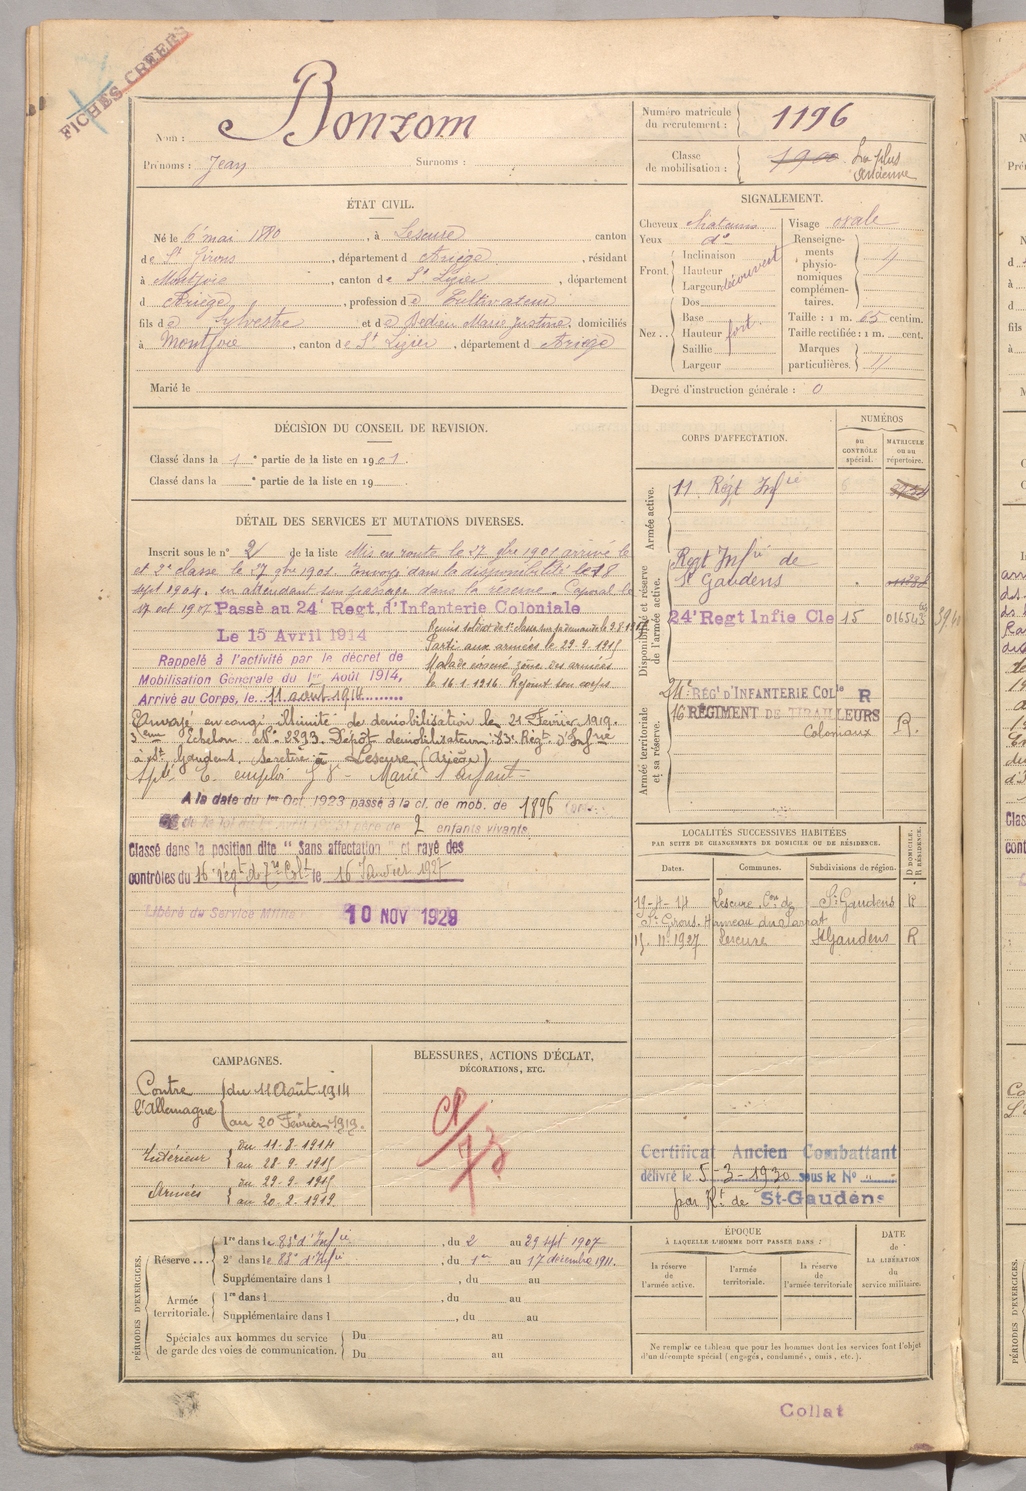 FICHES CRÉÉES
Nom : Bonzom
Prénoms : Jean Surnoms :
Numéro matricule du recrutement : 1196
Classe de mobilisation : 1900 La plus ancienne
ÉTAT CIVIL.
Né le 6 mai 1880, à Lescure canton
de St Girons, département d Ariège, résidant
à Montjoie, canton de St Lizier, département
d Ariège, profession de Cultivateur
fils de Sylvestre et de Dedieu Marie Justine, domiciliés
à Montjoie, canton de St Lizier, département d Ariège
Marié le
SIGNALEMENT.
Cheveux châtains Visage ovale
Yeux do
Front. Inclinaison
Hauteur
Largeur découvert
Nez Dos
Base
Hauteur fort
Saillie
Largeur
Renseignements physionomiques complémentaires.
Taille : 1 m. 65 centim.
Taille rectifiée : 1 m. cent.
Marques particulières. //
Degré d'instruction générale : 0
DÉCISION DU CONSEIL DE REVISION.
Classé dans la 1e partie de la liste en 1901.
Classé dans la e partie de la liste en 19
DÉTAIL DES SERVICES ET MUTATIONS DIVERSES.
Inscrit sous le n° 2 de la liste Mis en route le 27 9bre 1901 arrivé le
et 2e classe le 27 9bre 1901. Envoyé dans la disponibilité le 18
sept 1904, en attendant son passage dans la réserve. Caporal le
17 oct 1907 Passé au 24e Regt. d'Infanterie Coloniale
Le 15 Avril 1914
Remis soldat de 1e classe sur sa demande le
Rappelé à l'activité par le décret de
Mobilisation Générale du 1er Août 1914,
Arrivé au Corps, le 11 août 1914
Parti aux armées le 29.9.1915
Malade évacué zône des armées
le 16.1.1916. Rejoint son corps
Envoyé en congé illimité de démobilisation le 21 Février 1919.
3eme Echelon N° 2293. Dépôt démobilisateur : 83e Régt d'Infrie
à St Gaudens. Se retire à Lescure (Ariège)
A la date du 1er Oct. 1923 passé à la cl. de mob. de 1896
père de 2 enfants vivants.
Classé dans la position dite " Sans affectation " et rayé des
contrôles du 16e régt de le 16 Janvier 1927
Libéré du Service Militaire 10 NOV 1929
CORPS D'AFFECTATION.
NUMÉROS
AU CONTRÔLE spécial.
MATRICULE ou au répertoire.
Armée active.
11e Régt Infie
Disponibilité et réserve de l'armée active.
Regt Infie de
St Gaudens
24e Regt Infie Cle 15 01654
Armée territoriale et sa réserve.
24e RÉGt D'INFANTERIE COLle R
16 RÉGIMENT DE TIRAILLEURS
Coloniaux R.
LOCALITÉS SUCCESSIVES HABITÉES
PAR SUITE DE CHANGEMENTS DE DOMICILE OU DE RÉSIDENCE.
Dates. Communes. Subdivisions de région. D DOMICILE. R RÉSIDENCE.
19-4-14 Lescure, Con de St Gaudens R
St Girons. Hameau du
11.1927 Lescure St Gaudens R
CAMPAGNES.
Contre l'Allemagne du 11 Août 1914
au 20 Février 1919.
Intérieur du 11-8-1914
au 28-9-1915
Armées du 29-9-1915
au 20-2-1919
BLESSURES, ACTIONS D'ÉCLAT,
DÉCORATIONS, ETC.
Certificat Ancien Combattant
délivré le 5-3-1930 sous le N°
par Rt de St-Gaudens
PÉRIODES D'EXERCICES.
Réserve 1re dans le 83e d'Infie, du 2 au 29 sept 1907
2e dans le 83e d'Infie, du 1er au 17 décembre 1911.
Supplémentaire dans l , du au
Armée territoriale. 1re dans l , du au
Supplémentaire dans l , du au
Spéciales aux hommes du service
de garde des voies de communication. Du au
Du au
ÉPOQUE
À LAQUELLE L'HOMME DOIT PASSER DANS :
la réserve de l'armée active. l'armée territoriale. la réserve de l'armée territoriale
DATE de LA LIBÉRATION du service militaire.
Ne remplir ce tableau que pour les hommes dont les services font l'objet
d'un décompte spécial (engagés, condamnés, omis, etc.).
Collat